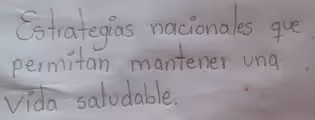 Estrategias nacionales que
permitan mantener una
vida saludable.